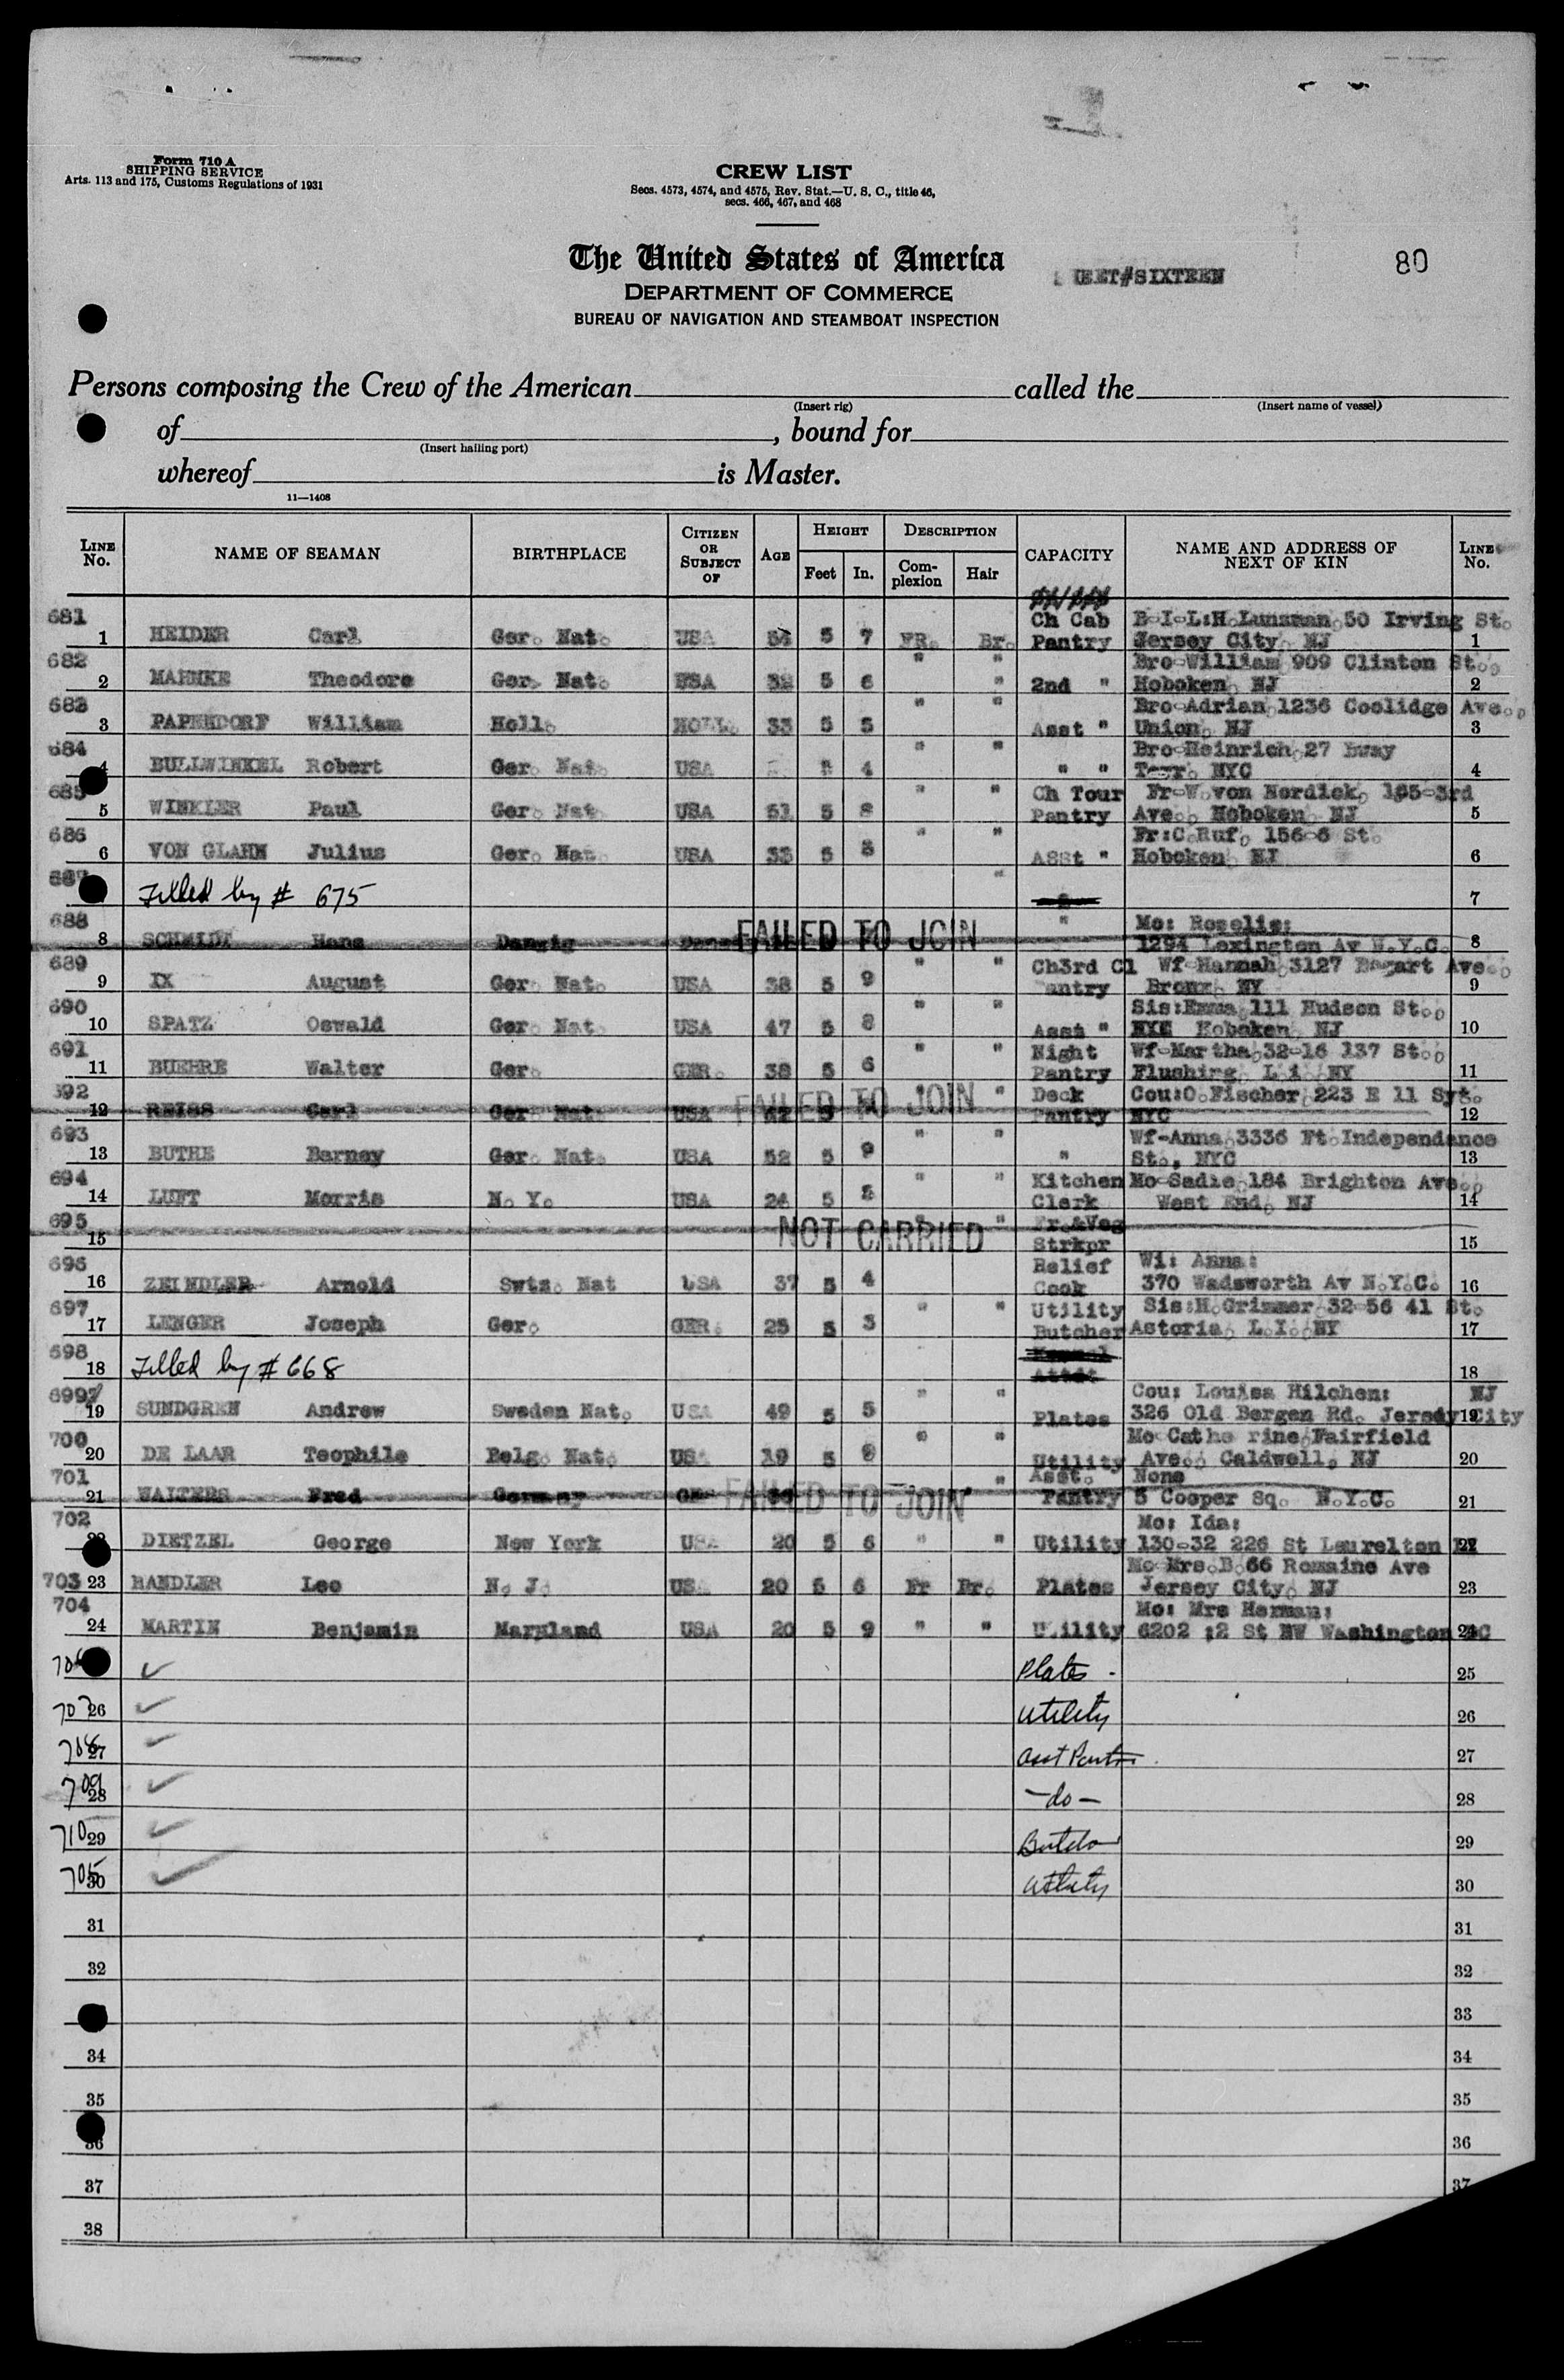 Form 710 A
SHIPPING SERVICE
Arts. 113 and 175, Customs Regulations of 1931
CREW LIST
Secs. 4573, 4574, and 4575, Rev. Stat.—U. S. C., title 46,
secs. 466, 467, and 468
The United States of America
DEPARTMENT OF COMMERCE
BUREAU OF NAVIGATION AND STEAMBOAT INSPECTION
#SIXTEEN
80
Persons composing the Crew of the American called the
(Insert rig) (Insert name of vessel)
of , bound for
(Insert hailing port)
whereof is Master.
11—1408
LINE No. NAME OF SEAMAN BIRTHPLACE CITIZEN OR SUBJECT OF AGE HEIGHT Feet In. DESCRIPTION Complexion Hair CAPACITY NAME AND ADDRESS OF NEXT OF KIN LINE No.
681 Ch Cab B-I-L:H.Lunsman,50 Irving St.
1 HEIDER Carl Ger. Nat. USA 54 5 7 FR. Br. Pantry Jersey City, NJ 1
682 " " Bro-William 909 Clinton St.,
2 MAHNKE Theodore Ger. Nat. USA 32 5 6 2nd " Hoboken, NJ 2
683 " " Bro-Adrian,1236 Coolidge Ave.,
3 PAPENDORF William Holl. HOLL. 33 5 5 Asst " Union, NJ 3
684 " " Bro-Heinrich,27 Bway
4 BULLWINKEL Robert Ger. Nat. USA 4 " " Terr. NYC 4
685 " " Ch Tour Fr-W.von Nordick, 185-3rd
5 WINKLER Paul Ger. Nat. USA 51 5 8 Pantry Ave., Hoboken, NJ 5
686 " " Fr:C.Ruf, 156-6 St.
6 VON GLAHN Julius Ger. Nat. USA 33 5 8 ASst " Hoboken, NJ 6
687 Filled by # 675 " 7
688 " Mo: Rozelia:
8 SCHMIDT Hans Danzig FAILED TO JOIN 1294 Lexington Av N.Y.C. 8
689 " " Ch3rd Cl Wf-Hannah,3127 Bogart Ave.,
9 IX August Ger. Nat. USA 38 5 9 Pantry Bronx, NY 9
690 " " Sis:Emma,111 Hudson St.,
10 SPATZ Oswald Ger. Nat. USA 47 5 8 Asst " NYC Hoboken, NJ 10
691 " " Night Wf-Martha,32-16 137 St.,
11 BUEHRE Walter Ger. GER. 38 5 6 Pantry Flushing, L i NY 11
692 " Deck Cou:O.Fischer,223 E 11 Syt.
12 REISS Carl Ger Nat. USA 42 FAILED TO JOIN Pantry NYC 12
693 " " Wf-Anna,3336 Ft.Independance
13 BUTHE Barney Ger. Nat. USA 52 5 9 " St., NYC 13
694 " " Kitchen Mo-Sadie,184 Brighton Ave.,
14 LUFT Morris N. Y. USA 24 5 8 Clerk West End, NJ 14
695 " " Fr.&Veg
15 NOT CARRIED Strkpr 15
696 Relief Wi: Anna:
16 ZEINDLER Arnold Swtz. Nat USA 37 5 4 Cook 370 Wadsworth Av N.Y.C. 16
697 " " Utility Sis:H.Grimmer,32-56 41 St.
17 LENGER Joseph Ger. GER. 25 5 3 Butcher Astoria, L.I.,NY 17
698
18 Filled by # 668 18
699 " " Cou: Louisa Hilchen: NJ
19 SUNDGREN Andrew Sweden Nat. USA 49 5 5 Plates 326 Old Bergen Rd. Jersey City 19
700 " " Mo-Cathe rine,Fairfield
20 DE LAAR Teophile Belg. Nat. USA 19 5 8 Utility Ave., Caldwell, NJ 20
701 " Asst. None
21 WALTERS Fred Germany FAILED TO JOIN Pantry 5 Cooper Sq. N.Y.C. 21
702 Mo: Ida:
DIETZEL George New York USA 20 5 6 " " Utility 130-32 226 St Laurelton 22
Mo Mrs.B.66 Romaine Ave
703 23 HANDLER Leo N. J. USA 20 5 6 Fr Br. Plates Jersey City, NJ 23
704 Mo: Mrs Herman:
24 MARTIN Benjamin Maryland USA 20 5 9 " " Utility 6202 :2 St NW Washington DC 24
Plates - 25
707 26 Utility 26
708 27 Asst Pantr 27
709 28 - do - 28
710 29 Butcher 29
705 30 Utility 30
31 31
32 32
33
34 34
35 35
36 36
37 37
38